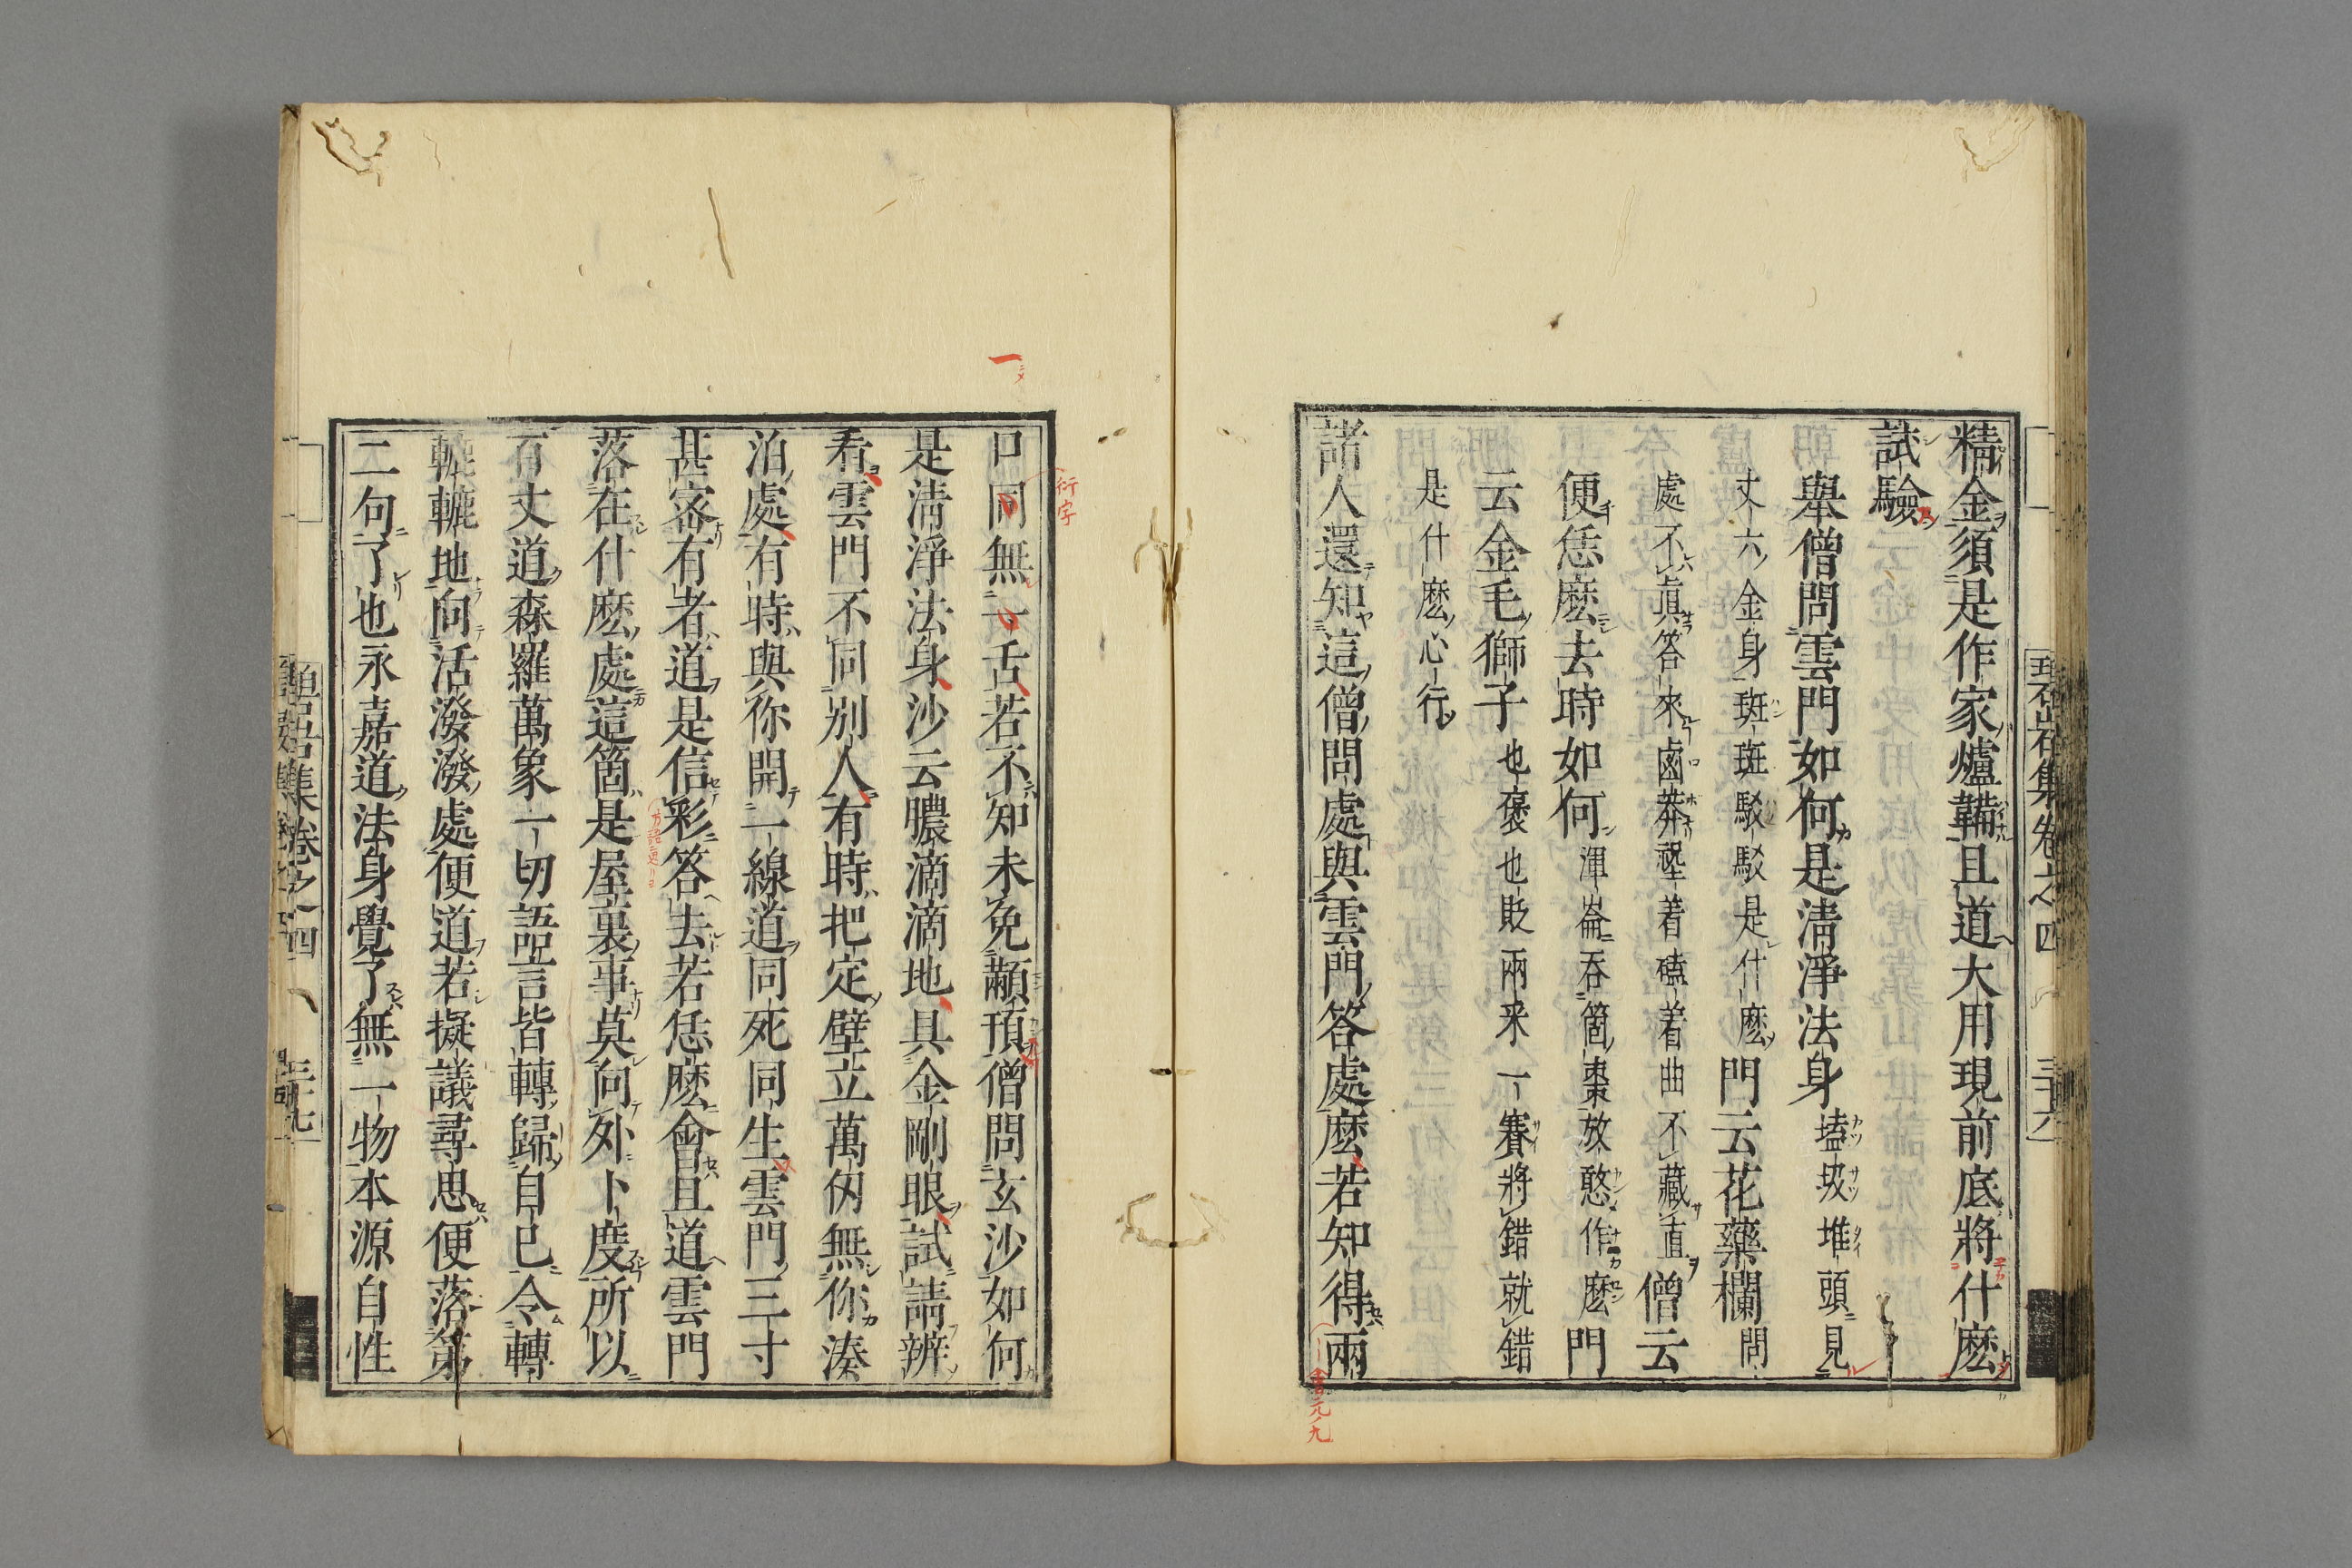 碧岩集卷之四
三十六
精金須是作家爐鞴且道大用現前底將什麽
試驗
舉僧問雲門如何是清淨法身𡋯圾堆頭見
丈六金身斑斑駁駁是什麽門云花藥欄問
處不真答來鹵莽𡎺着磕着曲不藏直僧云
便恁麽去時如何渾崙吞箇棗放憨作麽門
云金毛獅子也褒也貶兩采一賽將錯就錯
是什麽心行
諸人還知這僧問處與雲門答處麽若知得兩
口同無一舌若不知未免顢頇僧問玄沙如何
是清淨法身沙云膿滴滴地具金剛眼試請辨
看雲門不同別人有時把定壁立萬仞無你湊
泊處有時與你開一線道同死同生雲門三寸
甚密有者道是信彩答去若恁麽會且道雲門
落在什麽處這箇是屋裏事莫向外卜度所以
百丈道森羅萬象一切語言皆轉歸自己令轉
轆轆地向活潑潑處便道若擬議尋思便落第
二句了也永嘉道法身覺了無一物本源自性
碧岩集卷之四
三十七
衍字